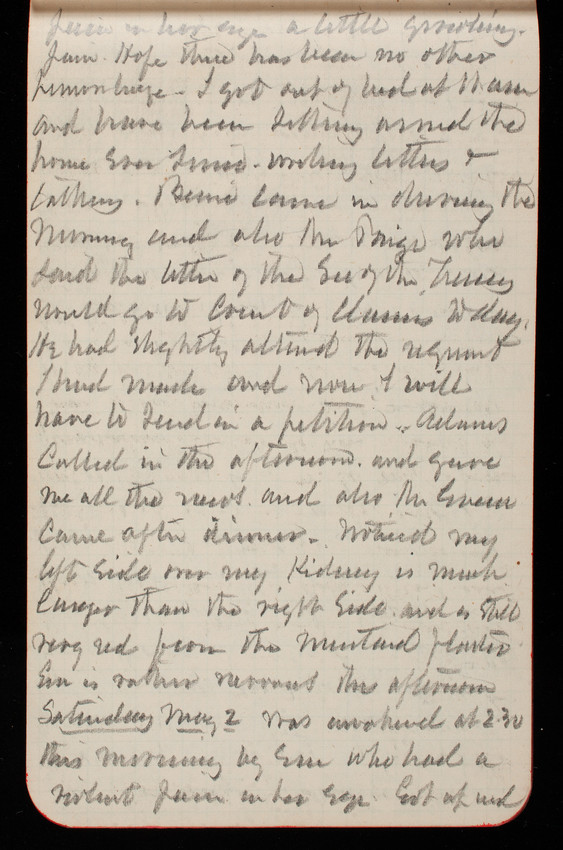 pain in her eye a little growling
pain. Hope there has been no other
hemorhage - I got out of bed at
and have been sitting around the
home ever since - writing letters &
came in during the
Morning and also Mr Paige who
said the letter of the Sec of the Treasy
would go to Court of Claims to day.
He had slightly altered the request
I had made and now I will
have to send in a petition. Adams
Called in the afternoon. and gave
me all the news. and also Mr Green
Came after dinner - Noticed my
left side over my Kidney is much
larger than the right side and is still
very red from the mustard plaster
Em is rather nervous this afternoon
Saturday May 2 was awakened at 2.30
this morning by Em who had a
violent pain in her eye. Got up and